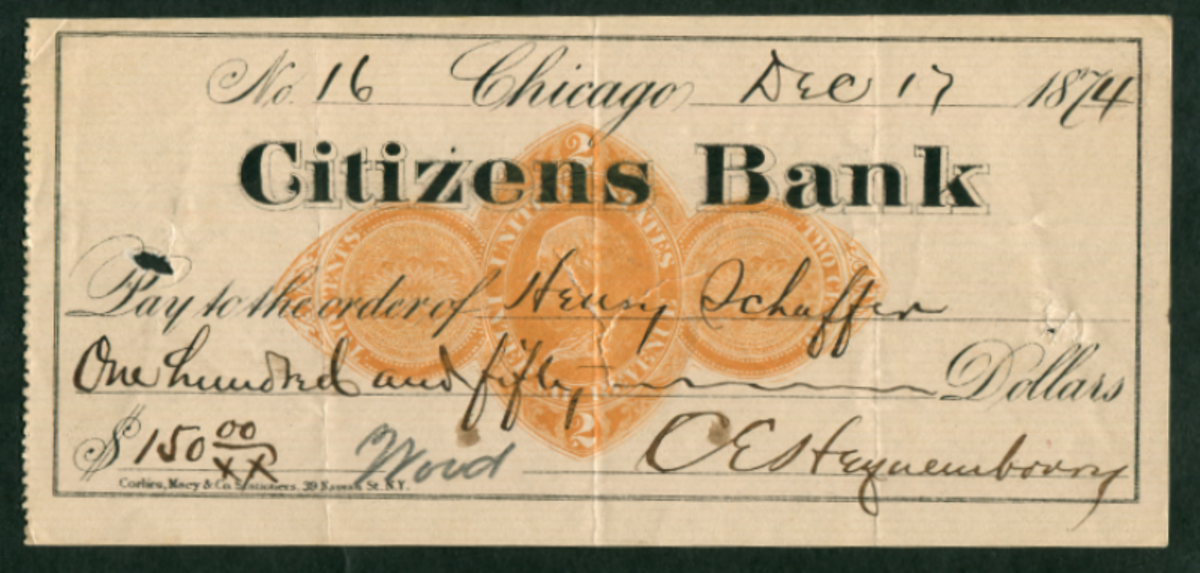 No. 16 Chicago, Dec 17 1874
Citizens Bank
2
UNITED STATES
TWO CENTS
Pay to the order of Henry Schaffer
One hundred and fifty Dollars
INTERNAL REVENUE
2
$ 150 00/XX
Corlies, Macy & Co. Stationers, 39 Nassau St. N.Y.